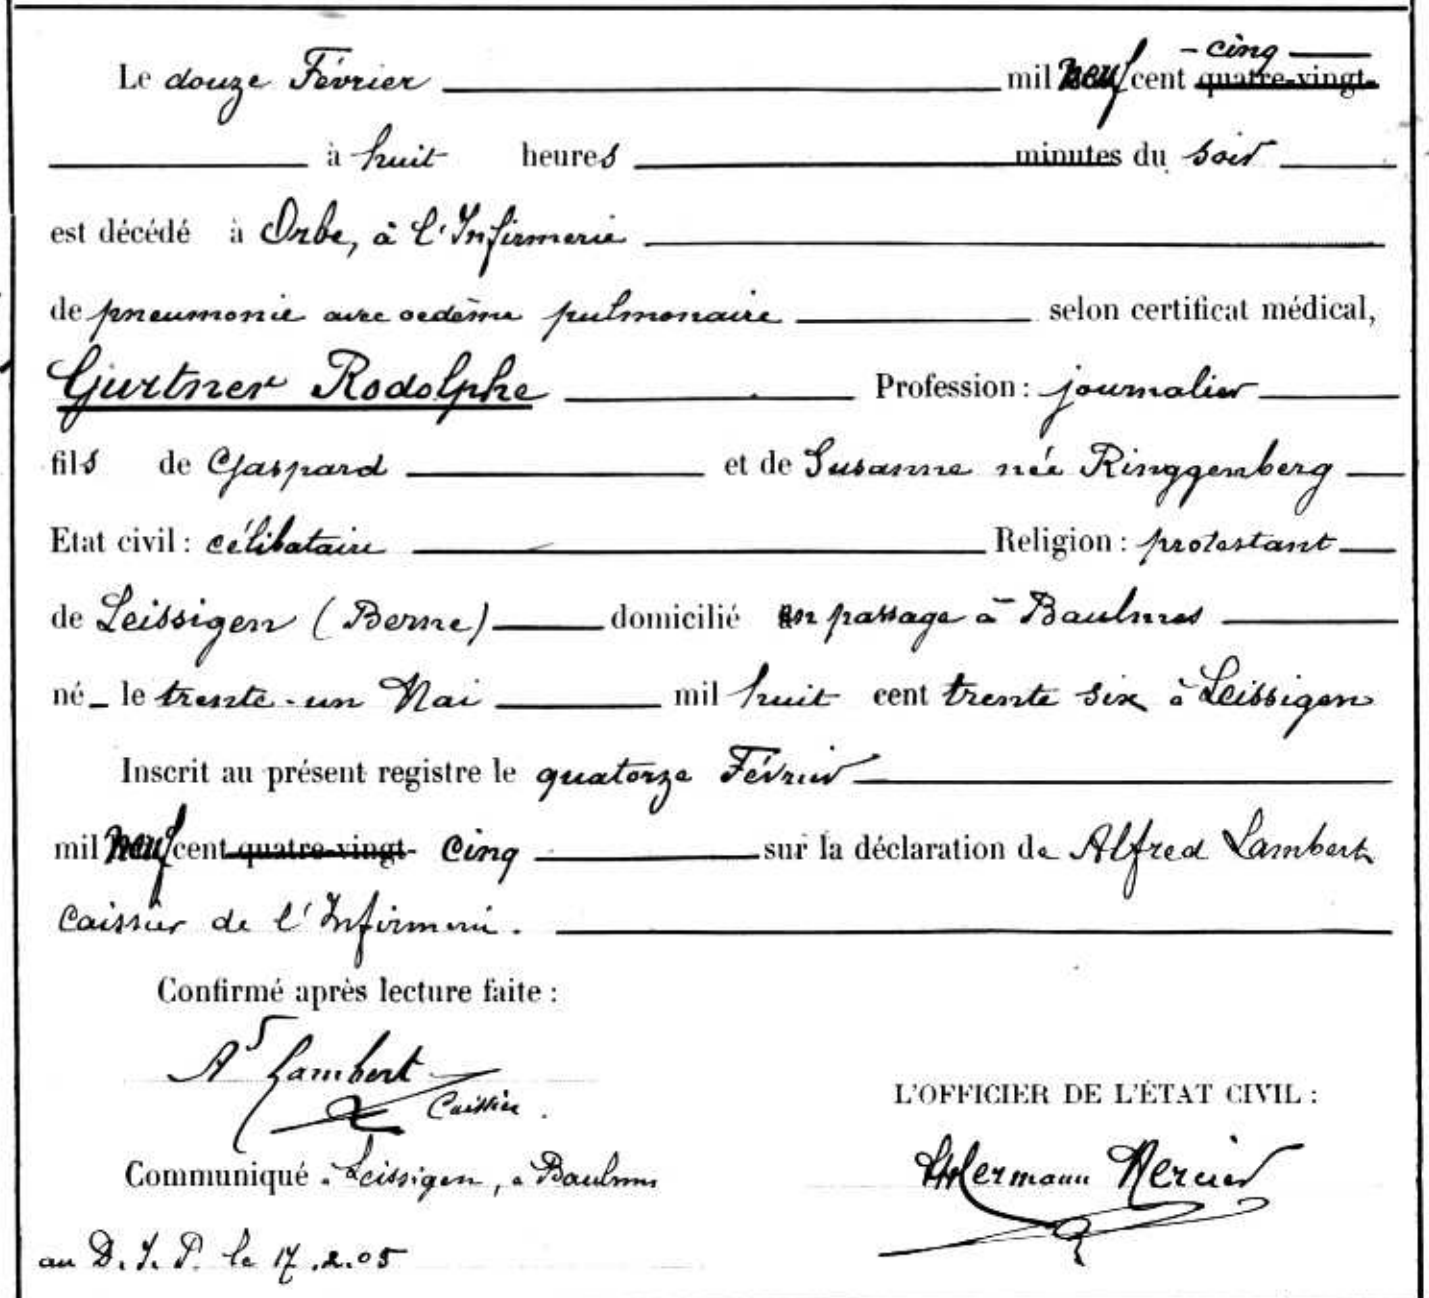 - cinq
Le douze Février mil neuf cent quatre-vingt-
à huit heures minutes du soir
est décédé à Orbe, à l'Infirmerie
de pneumonie avec oedème pulmonaire selon certificat médical,
Gurtner Rodolphe Profession : journalier
fils de Gaspard et de Susanne née Ringgenberg
Etat civil : célibataire Religion : protestant
de Leissigen (Berne) domicilié en passage à Baulmes
né le trente-un Mai mil huit cent trente six à Leissigen
Inscrit au présent registre le quatorze Février
mil neuf cent quatre-vingt- cinq sur la déclaration de Alfred Lambert
Caissier de l'Infirmerie.
Confirmé après lecture faite :
Lambert
Caissier.
L'OFFICIER DE L'ÉTAT CIVIL :
Communiqué à Leissigen, à Baulmes
Hermann Mercier
au D. J. P. le 17.2.05